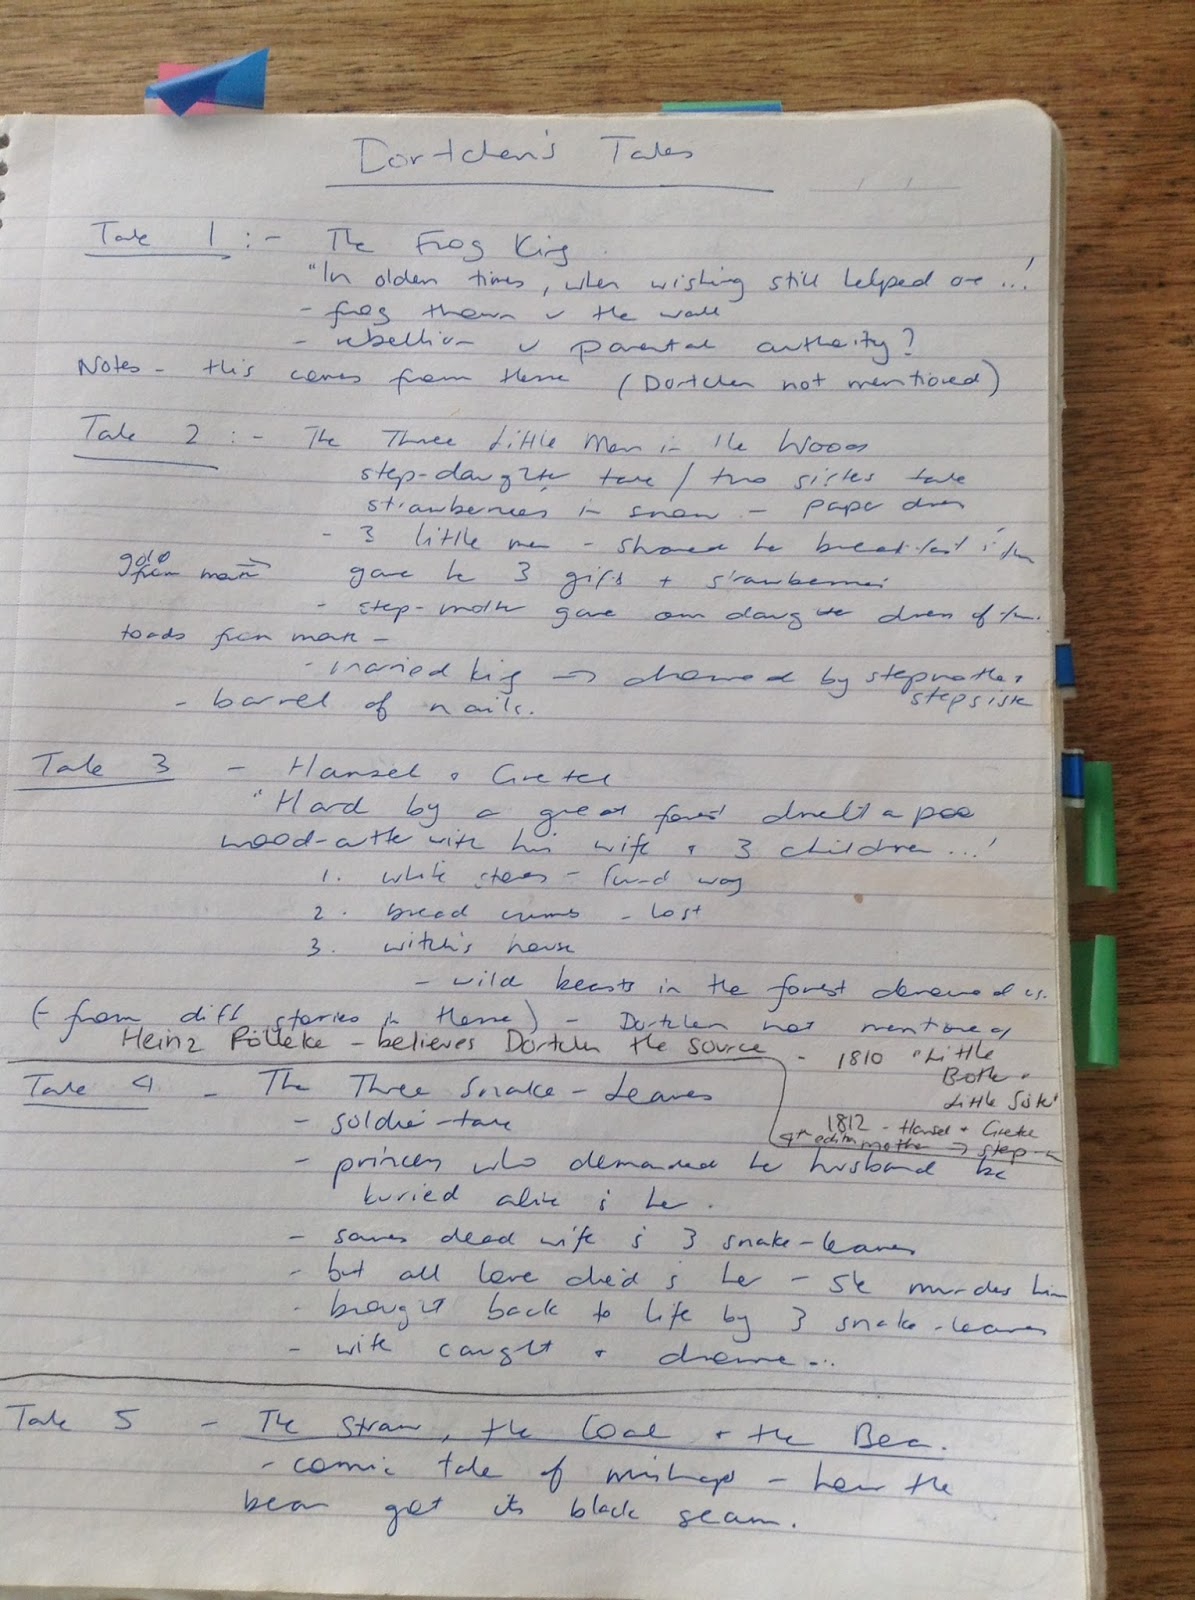 Dortchen's Tales
Tale 1 :- The Frog King
"In olden times, when wishing still helped one ...'
- frog thrown v the wall
- rebellion v parental authority?
Notes - this comes from Hesse (Dortchen not mentioned)
Tale 2 :- The Three Little Men in the Woods
step-daughter tale / two sisters tale
strawberries in snow - paper dress
- 3 little men - shared her breakfast
gold from mouth → gave her 3 gifts + strawberries
- step-mother gave own daughter dress of fur
toads from mouth -
- married king → drowned by stepmother
stepsister
- barrel of nails.
Tale 3 - Hansel + Gretel
"Hard by a great forest dwelt a poor
wood-cutter with his wife + 3 children ...'
1. white stones - found way
2. bread crumbs - lost
3. witch's house
- wild beasts in the forest devoured us.
(- from diff stories in Hesse) - Dortchen not mentioned
Heinz Rölleke - believes Dortchen the source - 1810 "Little
Brother +
Little Sister'
1812 - Hansel + Gretel
4th edition mother → step-m
Tale 4 - The Three Snake-Leaves
- soldier-tale
- princess who demanded her husband be
buried alive
- saves dead wife 3 snake-leaves
- but all love died her - she murders him
- brought back to life by 3 snake-leaves
- wife caught + drowned...
Tale 5 - The Straw, the Coal + the Bean.
- comic tale of mishaps - how the
bean got its black seam.